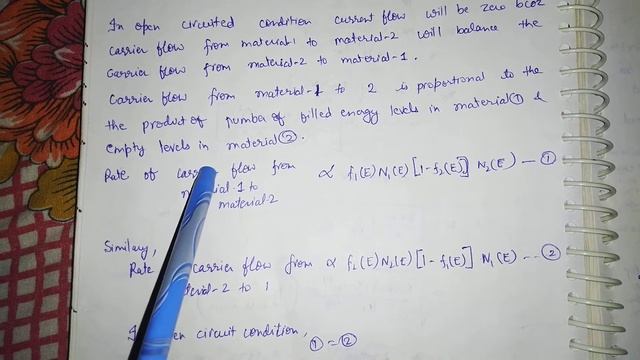 In open circuited condition current flow will be zero bcoz
carrier flow from material-1 to material-2 will balance the
carrier flow from material-2 to material-1.
Carrier flow from material-1 to 2 is proportional to the
the product of number of filled energy levels in material ① &
empty levels in material ②.
Rate of flow from ∝ f₁(E) N₁(E) [1-f₂(E)] N₂(E) — ①
ial-1 to
material-2
Similary,
Rate carrier flow from ∝ f₂(E) N₂(E) [1-f₁(E)] N₁(E) -- ②
2 to 1
circuit condition,
① = ②